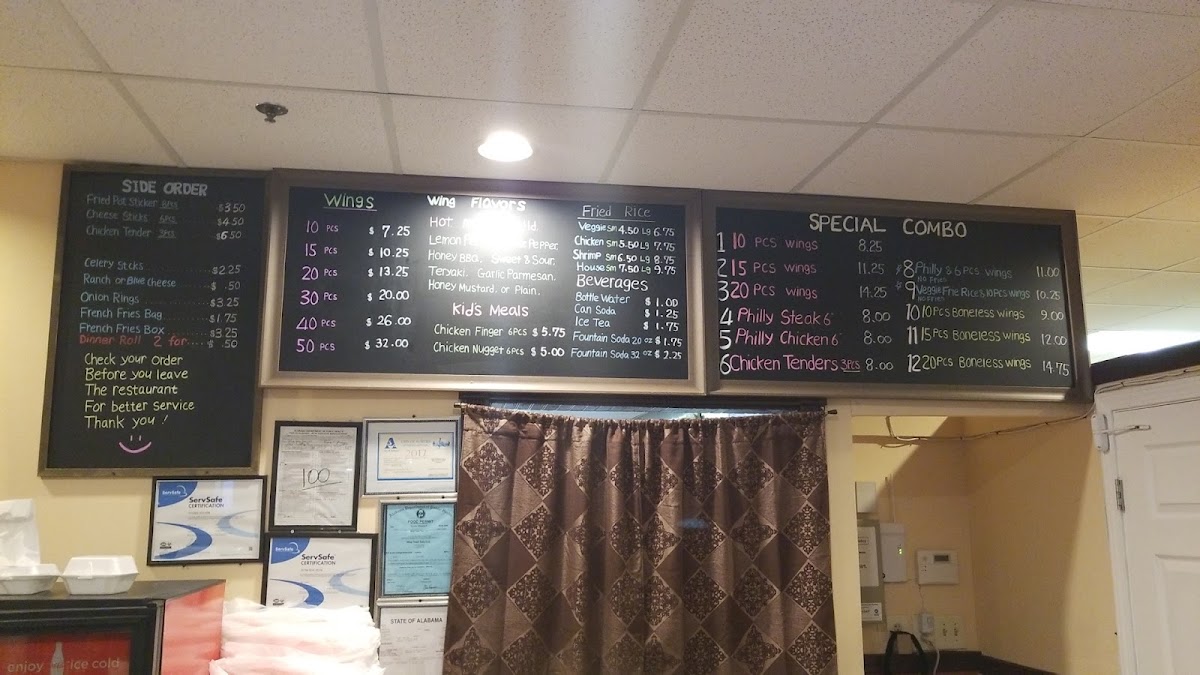 SIDE ORDER
Fried Pot Sticker 8pcs $3.50
Cheese Sticks 6pcs. $4.50
Chicken Tender 3pcs. $6.50
Celery Stcks $2.25
Ranch or Blue cheese $ .50
Onion Rings $3.25
French Fries Bag $1.75
French Fries Box $3.25
Dinner Roll 2 for $ .50
Check your order
Before you leave
The restaurant
For better service
Thank you !
Wings
10 PCS $ 7.25
15 PCS $ 10.25
20 PCS $ 13.25
30 PCS $ 20.00
40 PCS $ 26.00
50 PCS $ 32.00
Wing Flavors
Hot
Lemon Pepper,
Honey BBQ, Sweet & Sour,
Teriyaki, Garlic Parmesan,
Honey Mustard, or Plain.
Kid's Meals
Chicken Finger 6PCS $ 5.75
Chicken Nugget 6PCS $ 5.00
Fried Rice
Veggie Sm 4.50 Lg 6.75
Chicken Sm 5.50 Lg 7.75
Shrimp Sm 6.50 Lg 8.75
House Sm 7.50 Lg 9.75
Beverages
Bottle Water $ 1.00
Can Soda $ 1.25
Ice Tea $ 1.75
Fountain Soda 20 oz $ 1.75
Fountain Soda 32 oz $ 2.25
SPECIAL COMBO
1 10 PCS wings 8.25
2 15 PCS wings 11.25
3 20 PCS wings 14.25
4 Philly Steak 6" 8.00
5 Philly Chicken 6" 8.00
6 Chicken Tenders 3PCS 8.00
8 Philly & 6 pcs. wings 11.00
9 Veggie Frie Rice & 10 PCS wings 10.25
10 10 PCS Boneless wings 9.00
11 15 PCS Boneless wings 12.00
12 20 PCS Boneless wings 14.75
100
2017
ServSafe
ServSafe
CERTIFICATION
ServSafe
ServSafe
CERTIFICATION
FOOD PERMIT
STATE OF ALABAMA
enjoy ice cold